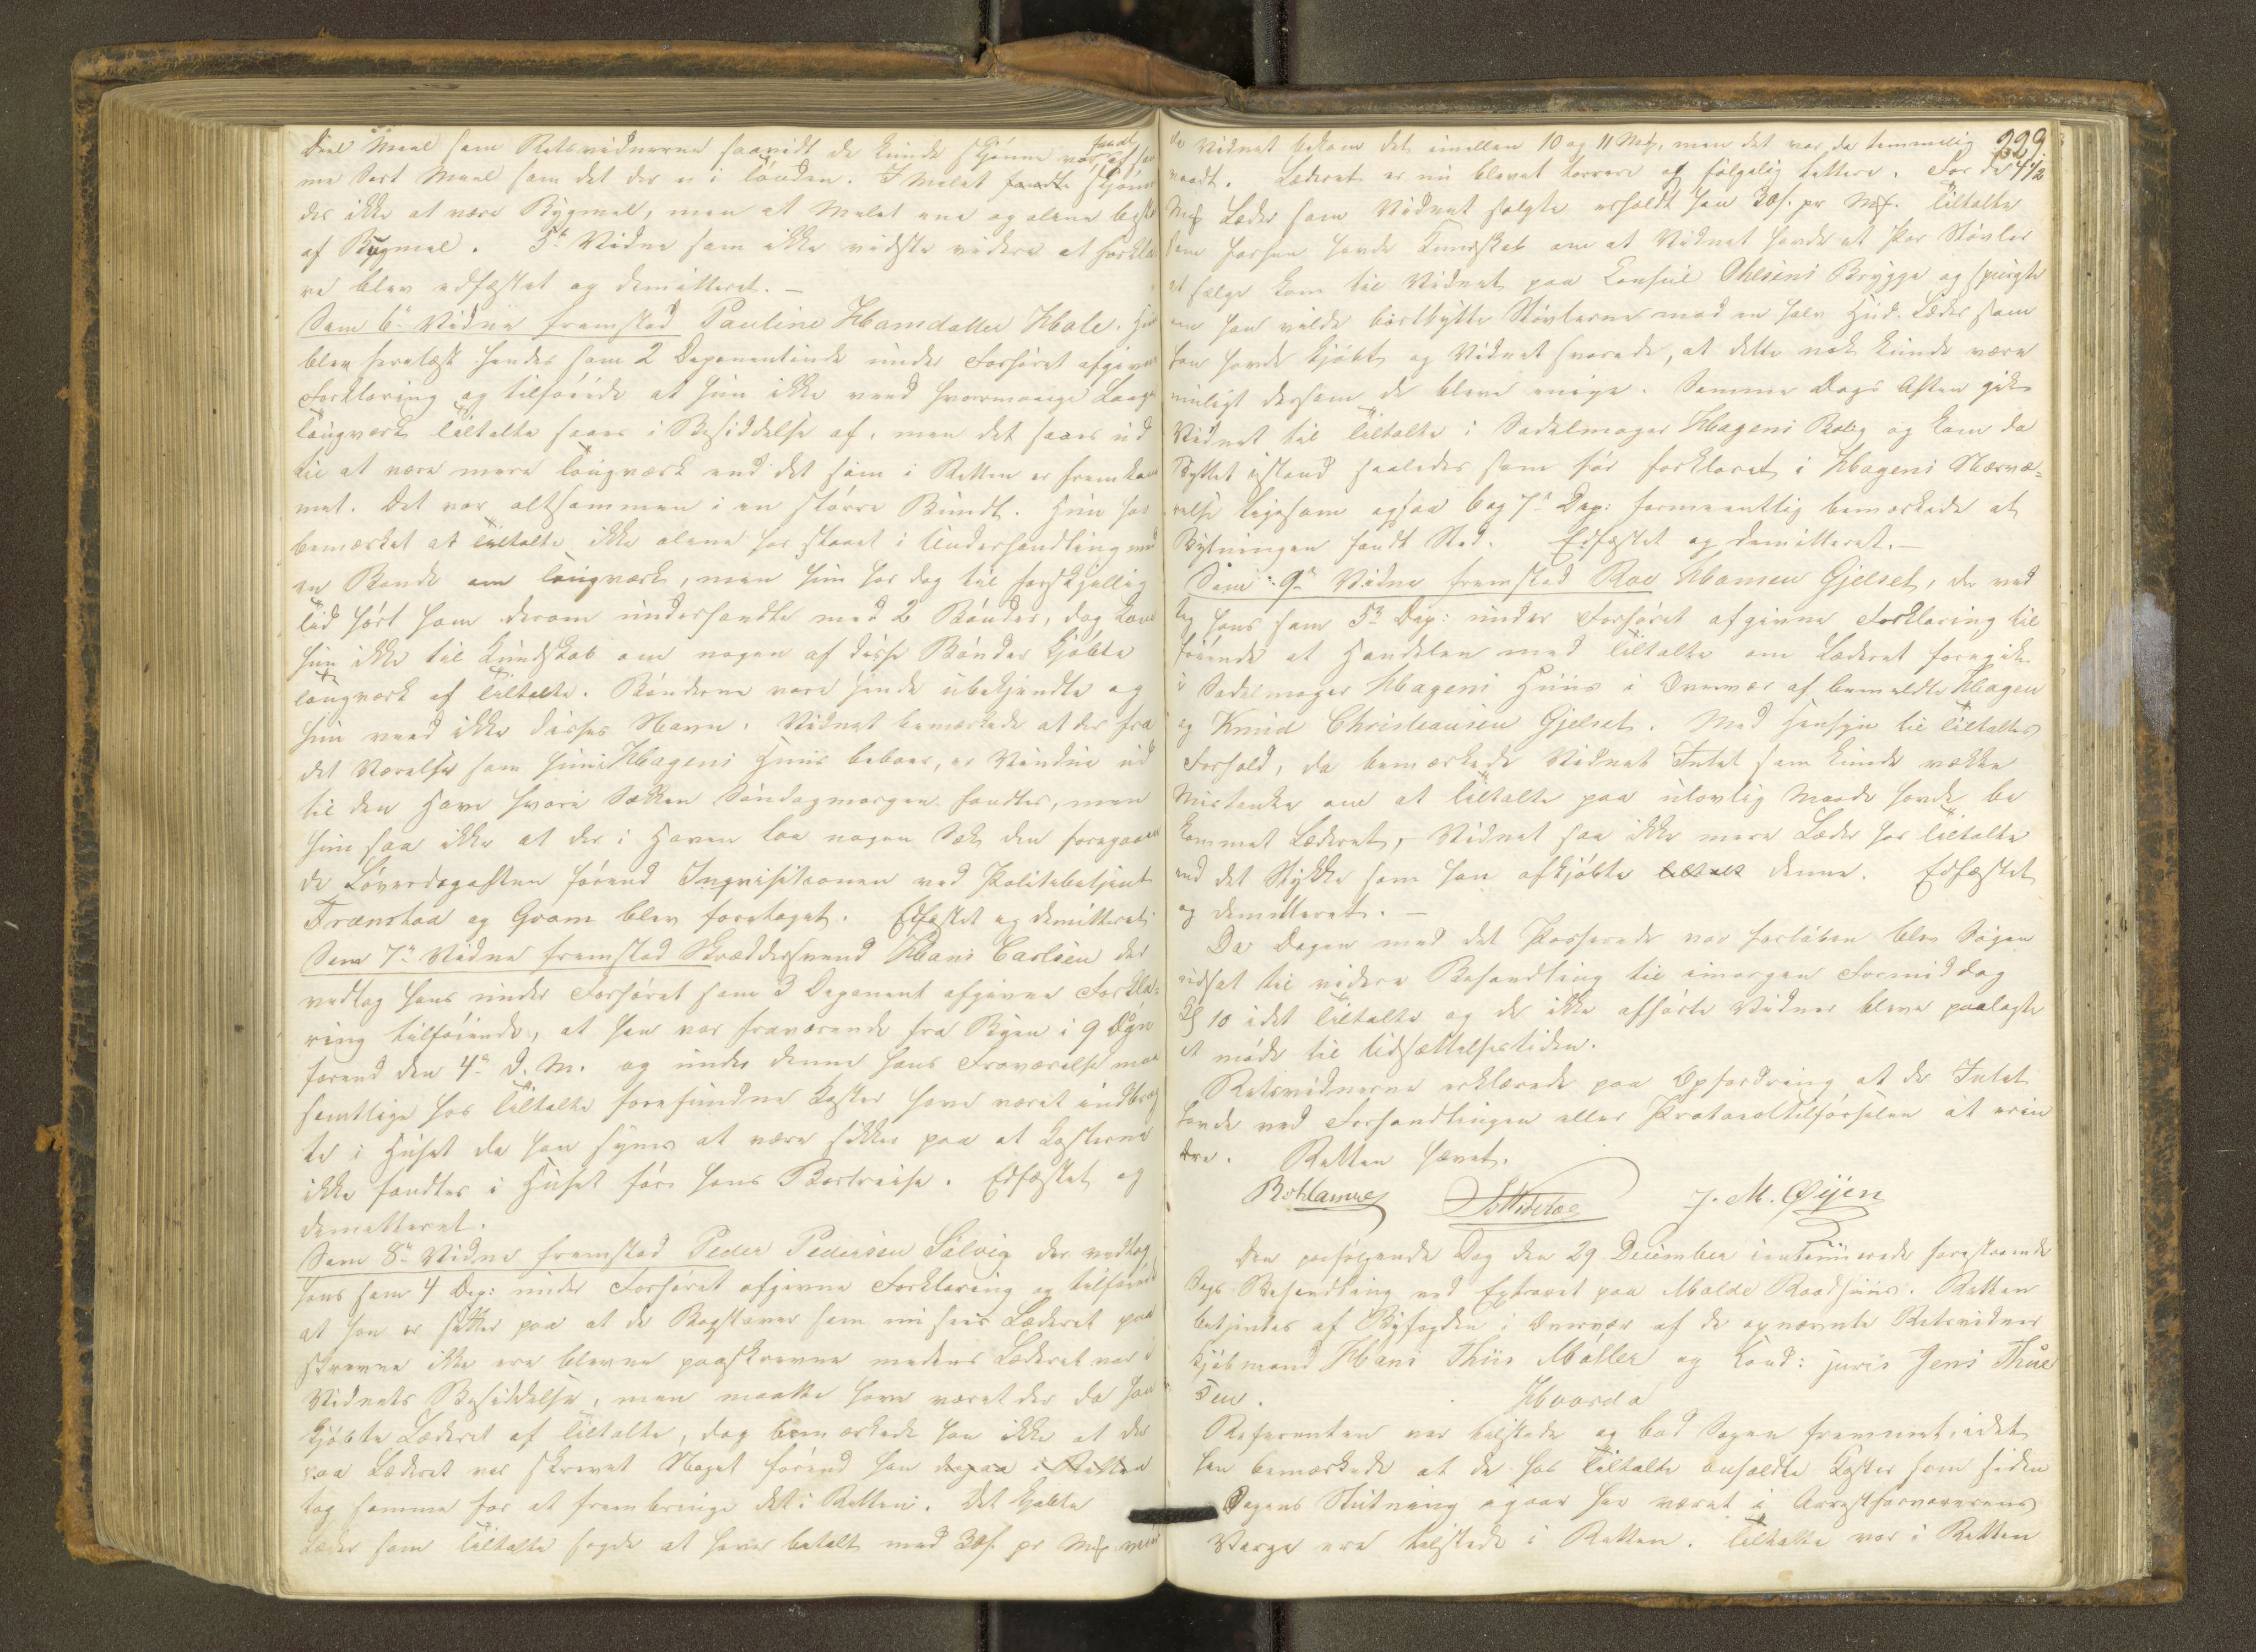 Deel Meel som Retsvidnerne saavidt de kunde skjønne var af sam
me Sort Meel som det der er i Tønden. I Melet fandt skjønne
des ikke at være Bygmel, men at Melet ene og alene bestod
af Rugmel. 5te Vidne som ikke vidste videre at forkla
re blev edfæstet og demitteret. —
Som 6te Vidne fremstod Pauline Hansdatter Hole. Hun
blev forelæst hendes som 2 Deponentinde under Forhøret afgivne
Forklaring og tilføiede at hun ikke veed hvormange Laage
Tougværk Tiltalte saaes i Besiddelse af, men det saaes ud
til at være mere Tougværk end det som i Retten er fremkom
met. Det var altsammen i en større Bundt. Hun har
bemærket at Tiltalte ikke alene har staaet i Underhandling med
en Bonde om Tougværk, men hun har dog til forskjellig
Tid hørt ham derom underhandle med 2 Bønder, dog kom
hun ikke til Kundskab om nogen af disse Bønder kjøbte
Tougværk af Tiltalte. Bønderne vare hende ubekjendte og
hun veed ikke disses Navn. Vidnet bemærkede at der fra
det Værelse som hun i Hagens Huus beboer, er Vindue ud
til den Have hvori Sækken Søndagmorgen fandtes, men
hun saa ikke at der i Haven laa nogen Sæk den foregaaen
de Løverdagaften førend Inqvisitionen ved Politibetjent
Frænstad og Gram blev foretaget. Edfæstet og demitteret.
Som 7de Vidne fremstod Skræddersvend Hans Carlsen der
vedtog hans under Forhøret som 3 Deponent afgivne Forkla-
ring tilføiende, at han var fraværende fra Byen i 9 Døgn
førend den 4de d. M. og under denne hans Fraværelse maa
samtlige hos Tiltalte forefundne Koster have været indbrag
te i Huset da han synes at være sikker paa at Kosterne
ikke fandtes i Huset før hans Bortreise. Edfæstet og
demitteret.
Som 8de Vidne fremstod Peder Pedersen Sølvig der vedtog
hans som 4 Dep: under Forhøret afgivne Forklaring og tilføiede
at han er sikker paa at de Bogstaver som nu sees Læderet paa
skrevne ikke ere blevne paaskrevne medens Læderet var i
Vidnets Besiddelse, men maatte have været der da han
kjøbte Læderet af Tiltalte, dog bemærkede han ikke at der
paa Læderet var skrevet Noget førend han dagen i Retten
tog samme for at frembringe det i Retten. Det kjøbte
Læder som Tiltalte sagde at have betalt med 30 s. pr Mk veiede
329
da Vidnet bekom det imellem 10 og 11 Mk, men det var da temmelig
vaadt. Læderet er nu blevet tørrere og følgelig lettere. For de 4 1/2
Mk Læder som Vidnet solgte erholdt han 30 s. pr Mk. Tiltalte
som forhen havde Kundskab om at Vidnet havde et Par Støvler
at sælge kom til Vidnet paa Consul Ohlsens Brygge og spurgte
om han vilde bortbytte Støvlerne mod en halv Hud Læder som
han havde kjøbt og Vidnet svarede, at dette nok kunde være
muligt dersom de bleve enige. Samme Dags Aften gik
Vidnet til Tiltalte i Sadelmager Hagens Bolig og kom da
Byttet istand saaledes som før forklaret i Hagens Nærvæ-
relse ligesom ogsaa 6 og 7de Dep: formeentlig bemærkede at
Bytningen fandt Sted. Edfæstet og demitteret. —
Som 9de Vidne fremstod Roe Hansen Gjelset, der ved
tog hans som 5te Dep: under Forhøret afgivne Forklaring til
føiende at Handelen med Tiltalte om Læderet foregik
i Sadelmager Hagens Huus i Overvær af bemeldte Hagen
og Knud Christiansen Gjelset. Med Hensyn til Tiltaltes
Forhold, da bemærkede Vidnet Intet som kunde vække
Mistanke om at Tiltalte paa ulovlig Maade havde be
kommet Læderet, Vidnet saa ikke mere Læder hos Tiltalte
end det Stykke som han afkjøbte denne. Edfæstet
og demitteret. —
Da Dagen med det Passerede var forløben blev Sagen
udsat til videre Behandling til imorgen Formiddag
Kl 10 idet Tiltalte og de ikke afhørte Vidner bleve paalagte
at møde til Udsættelsestiden.
Retsvidnerne erklærede paa Opfordring at de Intet
havde ved Forhandlingen eller Protocoltilførselen at erin
dre. Retten hævet.
J. M. Øyen
Den paafølgende Dag den 29 December continuerede foregaaende
Sags Behandling ved Extraret paa Molde Raadhuus. Retten
betjentes af Byfogden i Overvær af de opnævnte Retsvidner
Kjøbmand Hans Thiis Møller og Cand: juris Jens Thue
sen. Hvorda
Referenten var tilstede og bad Sagen fremmet idet
han bemærkede at de hos Tiltalte anholdte Koster som siden
Dagens Slutning igaar har været i Arrestforvarerens
Værge ere tilstede i Retten. Tiltalte var i Retten